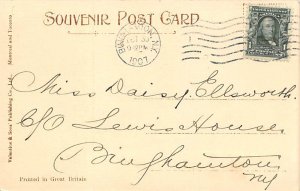 SOUVENIR POST CARD
Montreal and Toronto
Valentine & Sons Publishing Co., Ltd.
N.Y.
1907
Miss Daisy Ellsworth.
C/O Lewis House,
Binghamton,
NY
Printed in Great Britain